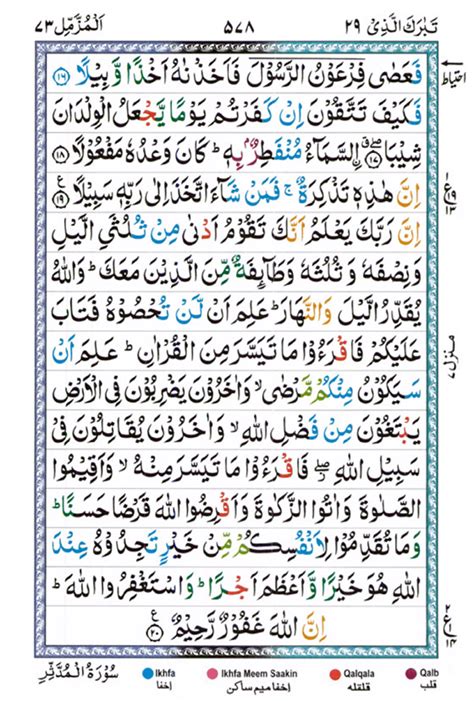 تَبٰرَكَ الَّذِیْ ٢٩ ٥٧٨ اَلْمُزَّمِّل ٧٣
فَعَصٰی فِرْعَوْنُ الرَّسُوْلَ فَاَخَذْنٰهُ اَخْذًا وَّبِیْلًا ١٦
احتیاط
فَكَیْفَ تَتَّقُوْنَ اِنْ كَفَرْتُمْ یَوْمًا یَّجْعَلُ الْوِلْدَانَ
شِیْبَا ۖۗ ١٧ اِۨلسَّمَآءُ مُنْفَطِرٌۢ بِهٖ ؕ كَانَ وَعْدُهٗ مَفْعُوْلًا ١٨
اِنَّ هٰذِهٖ تَذْكِرَةٌ ۚ فَمَنْ شَآءَ اتَّخَذَ اِلٰی رَبِّهٖ سَبِیْلًا ١٩ ع
اِنَّ رَبَّكَ یَعْلَمُ اَنَّكَ تَقُوْمُ اَدْنٰی مِنْ ثُلُثَیِ الَّیْلِ
وَنِصْفَهٗ وَثُلُثَهٗ وَطَآىِٕفَةٌ مِّنَ الَّذِیْنَ مَعَكَ ؕ وَاللّٰهُ
یُقَدِّرُ الَّیْلَ وَالنَّهَارَ ؕ عَلِمَ اَنْ لَّنْ تُحْصُوْهُ فَتَابَ
عَلَیْكُمْ فَاقْرَءُوْا مَا تَیَسَّرَ مِنَ الْقُرْاٰنِ ؕ عَلِمَ اَنْ
منزل ٧
سَیَكُوْنُ مِنْكُمْ مَّرْضٰی ۙ وَاٰخَرُوْنَ یَضْرِبُوْنَ فِی الْاَرْضِ
یَبْتَغُوْنَ مِنْ فَضْلِ اللّٰهِ ۙ وَاٰخَرُوْنَ یُقَاتِلُوْنَ فِیْ
سَبِیْلِ اللّٰهِ ۖؗ فَاقْرَءُوْا مَا تَیَسَّرَ مِنْهُ ۙ وَاَقِیْمُوا
الصَّلٰوةَ وَاٰتُوا الزَّكٰوةَ وَاَقْرِضُوا اللّٰهَ قَرْضًا حَسَنًا ؕ
وَمَا تُقَدِّمُوْا لِاَنْفُسِكُمْ مِّنْ خَیْرٍ تَجِدُوْهُ عِنْدَ
اللّٰهِ هُوَ خَیْرًا وَّاَعْظَمَ اَجْرًا ؕ وَاسْتَغْفِرُوا اللّٰهَ ؕ
اِنَّ اللّٰهَ غَفُوْرٌ رَّحِیْمٌ ٢٠ ع
سُوْرَةُ الْمُدَّثِّرِ
Ikhfa اخفا
Ikhfa Meem Saakin اخفا میم ساکن
Qalqala قلقلہ
Qalb قلب